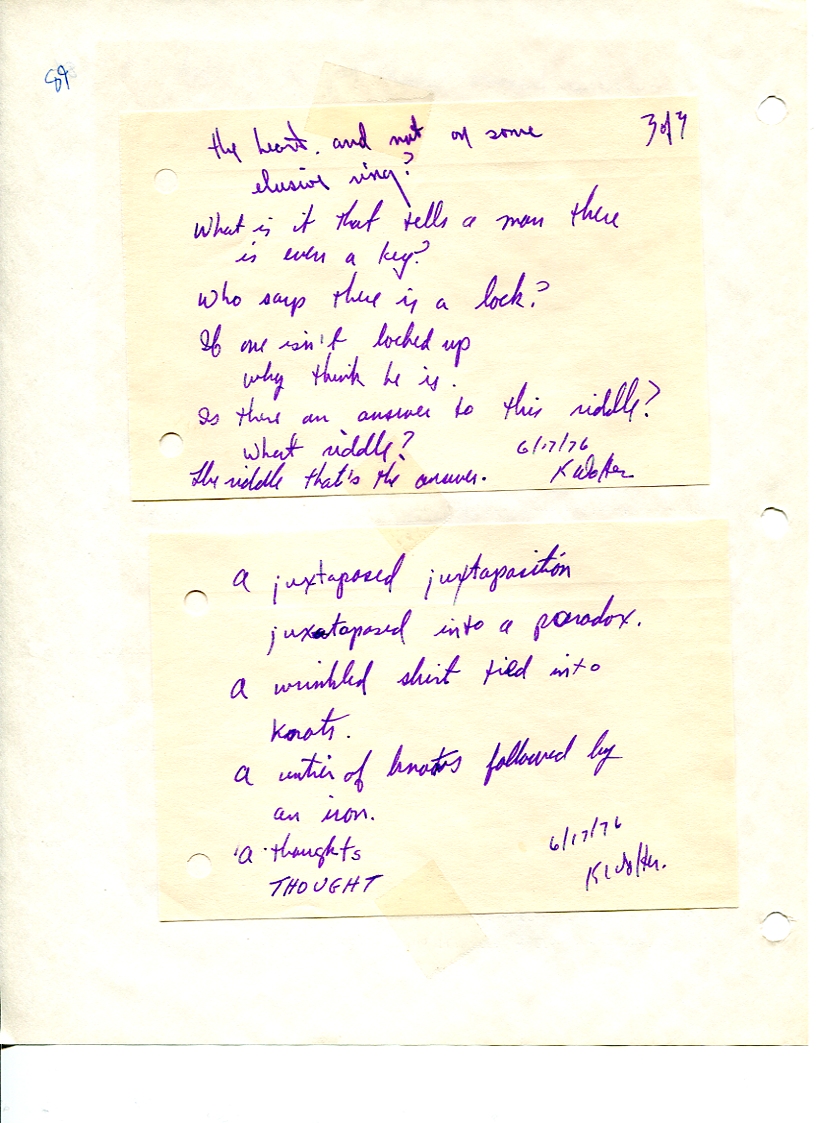 89
3 of 9
the heart. and not on some
elusive ring?
What is it that tells a man there
is even a key?
Who says there is a lock?
If one isn't locked up
why think he is.
Is there an answer to this riddle?
What riddle?
6/17/76
The riddle that's the answer.
K Wolter
A juxtaposed juxtaposition
juxtaposed into a paradox.
A wrinkled shirt tied into
Knots.
A untier of knots followed by
an iron.
'A thoughts
THOUGHT
6/17/76
K Wolter.